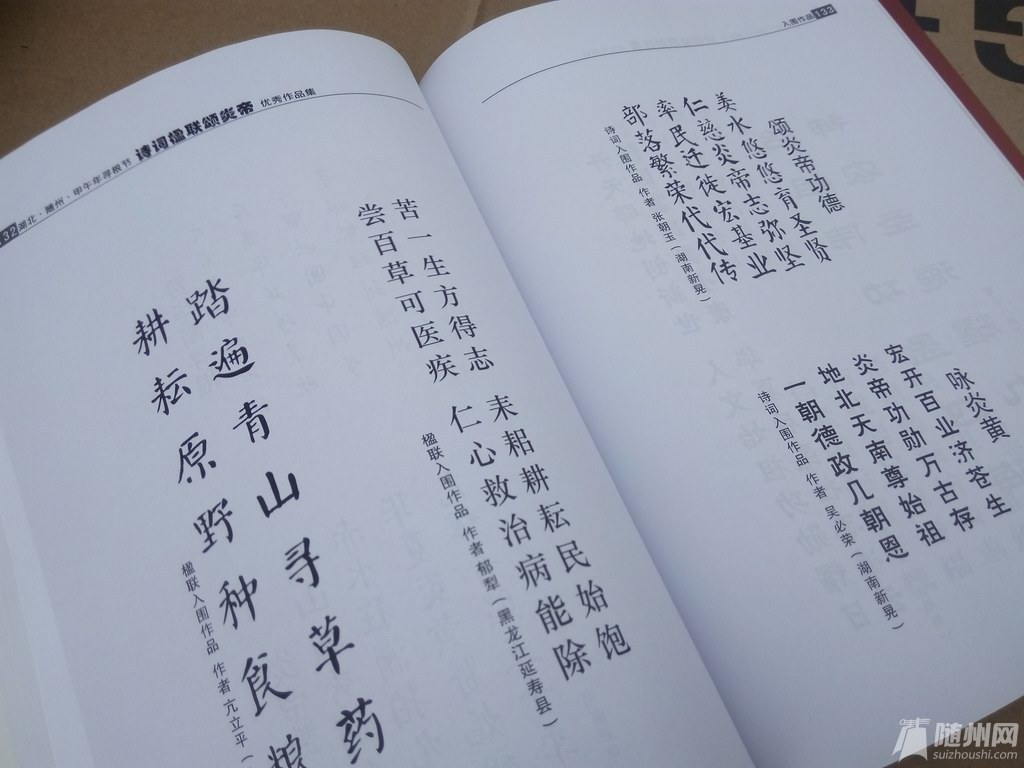 132 湖北·随州·甲午年寻根节 诗词楹联颂炎帝 优秀作品集
苦一生方得志 耒耜耕耘民始饱
尝百草可医疾 仁心救治病能除
楹联入围作品 作者郁犁(黑龙江延寿县)
踏遍青山寻草药
耕耘原野种食粮
楹联入围作品 作者亢立平(
入围作品 133
颂炎帝功德
姜水悠悠育圣贤
仁慈炎帝志弥坚
率民迁徙宏基业
部落繁荣代代传
诗词入围作品 作者 张朝玉(湖南新晃)
咏炎黄
宏开百业济苍生
炎帝功勋万古存
地北天南尊始祖
一朝德政几朝恩
诗词入围作品 作者 吴必荣(湖南新晃)
随州网
suizhoushi.com